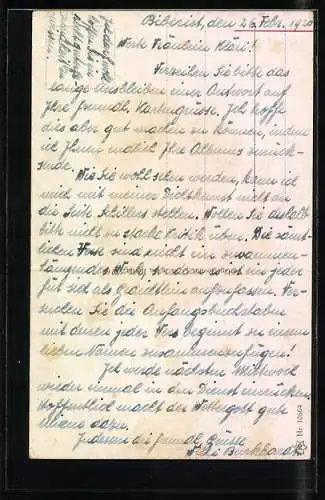 Biberist, den 26. Febr. 1920
Werte Fräulein Kläri!
Verzeihen Sie bitte das
lange Ausbleiben einer Antwort auf
Ihre freundl. Kartengrüsse. Ich hoffe
dies aber gut machen zu können, indem
ich Ihnen endlich Ihre Albums zurück-
sende.
Wie Sie wohl sehen werden, kann ich
mich mit meiner Dichtkunst nicht an
die Seite Schillers stellen. Wollen Sie deshalb
bitte nicht zu starke Kritik üben. Die sämt-
lichen Verse sind nicht ein zusammen-
hängendes sondern ist ein jeder
für sich als aufzufassen. Ver-
suchen Sie die Anfangsbuchstaben
mit denen jeder Vers beginnt zu einem
lieben Namen zusammenzufügen!
Ich werde nächsten Mittwoch
wieder einmal in den Dienst einrücken.
Hoffentlich macht der Wettergott gute
Miene dazu.
Indessen die freundl. Grüsse
Burkhardt
Nr. 10664